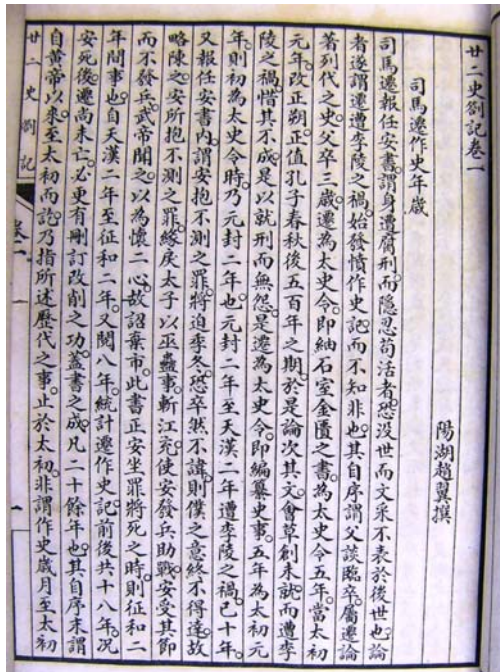 廿二史劄記卷一
陽湖趙翼撰
司馬遷作史年歲
司馬遷報任安書。謂身遭腐刑。而隱忍苟活者。恐没世而文采不表於後世也。論
者遂謂遷遭李陵之禍。始發憤作史記。而不知非也。其自序謂父談臨卒。屬遷論
著列代之史。父卒三歲。遷為太史令。即紬石室金匱之書。為太史令五年。當太初
元年。改正朔。正值孔子春秋後五百年之期。於是論次其文。會草創未就。而遭李
陵之禍。惜其不成。是以就刑而無怨。是遷為太史令。即編纂史事。五年為太初元
年。則初為太史令時。乃元封二年也。元封二年至天漢二年遭李陵之禍。已十年。
又報任安書內。謂安抱不測之罪。將迫季冬。恐卒然不諱。則僕之意終不得達。故
略陳之。安所抱不測之罪。緣戾太子以巫蠱事。斬江充。使安發兵助戰。安受其節
而不發兵。武帝聞之。以為懷二心。故詔棄市。此書正安坐罪將死之時。則征和二
年間事也。自天漢二年至征和二年。又閱八年。統計遷作史記。前後共十八年。況
安死後。遷尚未亡。必更有刪訂改削之功。蓋書之成。凡二十餘年也。其自序末謂
自黃帝以來至太初而訖。乃指所述歷代之事。止於太初。非謂作史歲月至太初
廿二史劄記 卷一 一